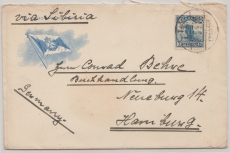 via Sibiria
Herrn Conrad Behre
Buchhandlung
Neueburg 14.
Hamburg.
Germany